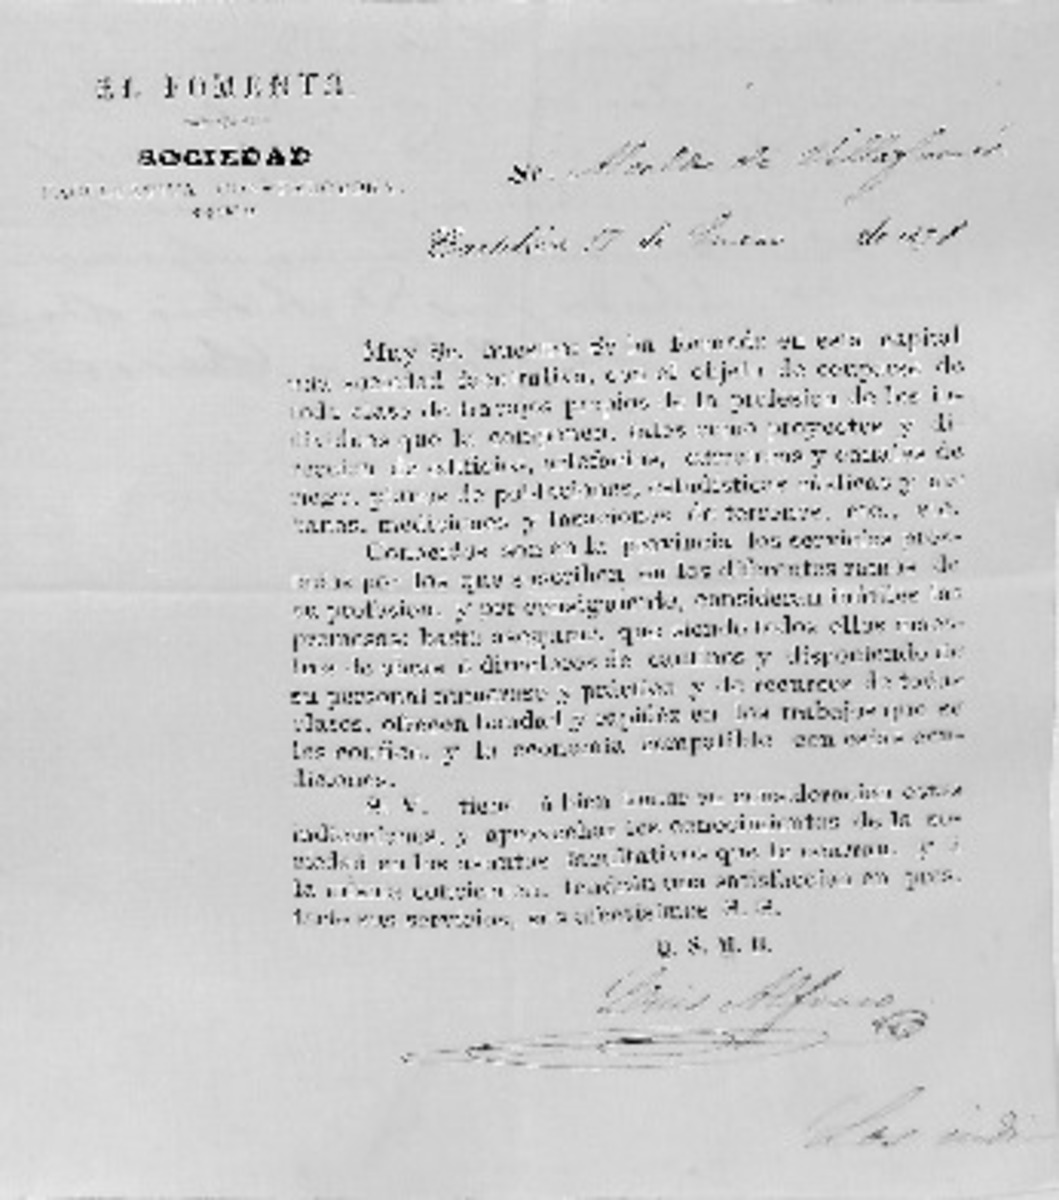 EL FOMENTO
SOCIEDAD
Sr. Alcalde de Villafamés
Castellón 17 de Enero de 1878
Muy Sr. nuestro: Se ha formado en esta capital
una sociedad facultativa, con el objeto de ocuparse de
toda clase de trabajos propios de la profesion de los in-
dividuos que la componen, tales como proyectos y di-
reccion de edificios, artefactos, carreteras y canales de
riego, planos de poblaciones, estadísticas rústicas y ur-
banas, mediciones y tasaciones de terrenos, etc., etc.
Conocidos son en la provincia los servicios pres-
tados por los que suscriben en los diferentes ramos de
su profesion, y por consiguiente, consideran inútiles las
promesas: basta asegurar, que siendo todos ellos maes-
tros de obras ó directores de caminos y disponiendo de
su personal numeroso y práctico y de recursos de todas
clases, ofrecen bondad y rapidéz en los trabajos que se
les confien, y la economía compatible con estas con-
diciones.
S. V. tiene á bien tomar en consideracion estas
indicaciones, y aprovechar los conocimientos de la so-
ciedad en los asuntos facultativos que le ocurran, y á
la misma conciernan, tendrán una satisfaccion en pres-
tarle sus servicios, sus afectísimos S. S.
Q. S. M. B.
Luis Alfonso
Las